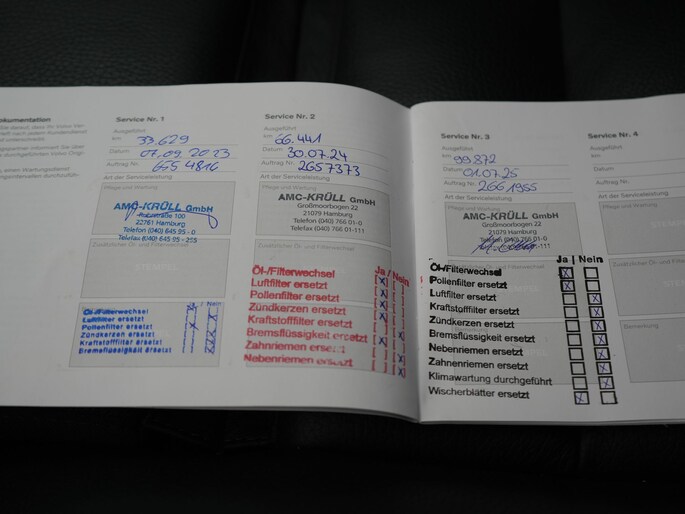 okumentation
Service Nr. 1
Ausgeführt
km 33.629
Datum 07.09.2023
Auftrag Nr. 655 4816
Art der Serviceleistung
Pflege und Wartung
AMC-KRÜLL GmbH
100
22761 Hamburg
Telefon (040) 645 95 - 0
Telefax (040) 645 95 - 255
Zusätzlicher Öl- und Filterwechsel
Ja / Nein
Öl-/Filterwechsel X
Luftfilter ersetzt X
Pollenfilter ersetzt X
Zündkerzen ersetzt X
Kraftstofffilter ersetzt X
Bremsflüssigkeit ersetzt X
Service Nr. 2
Ausgeführt
km 66.441
Datum 30.07.24
Auftrag Nr. 2657373
Art der Serviceleistung
Pflege und Wartung
AMC-KRÜLL GmbH
Großmoorbogen 22
21079 Hamburg
Telefon (040) 766 01-0
Telefax (040) 766 01-111
Zusätzlicher Öl- und Filterwechsel
Ja / Nein
Öl-/Filterwechsel X
Luftfilter ersetzt X
Pollenfilter ersetzt X
Zündkerzen ersetzt X
Kraftstofffilter ersetzt X
Bremsflüssigkeit ersetzt X
Zahnriemen ersetzt X
Nebenriemen ersetzt X
Service Nr. 3
Ausgeführt
km 99 872
Datum 01.07.25
Auftrag Nr. 2661955
Art der Serviceleistung
Pflege und Wartung
AMC-KRÜLL GmbH
Großmoorbogen 22
21079 Hamburg
Telefon (040) 766 01-0
-111
Ja / Nein
Öl-/Filterwechsel X
Pollenfilter ersetzt X
Luftfilter ersetzt X
Kraftstofffilter ersetzt X
Zündkerzen ersetzt X
Bremsflüssigkeit ersetzt X
Nebenriemen ersetzt X
Zahnriemen ersetzt X
Klimawartung durchgeführt X
Wischerblätter ersetzt X
Service Nr. 4
Ausgeführt
km
Datum
Auftrag Nr.
Art der Serviceleistung
Pflege und Wartung
Zusätzlicher Öl- und Filterwechsel
Bemerkung